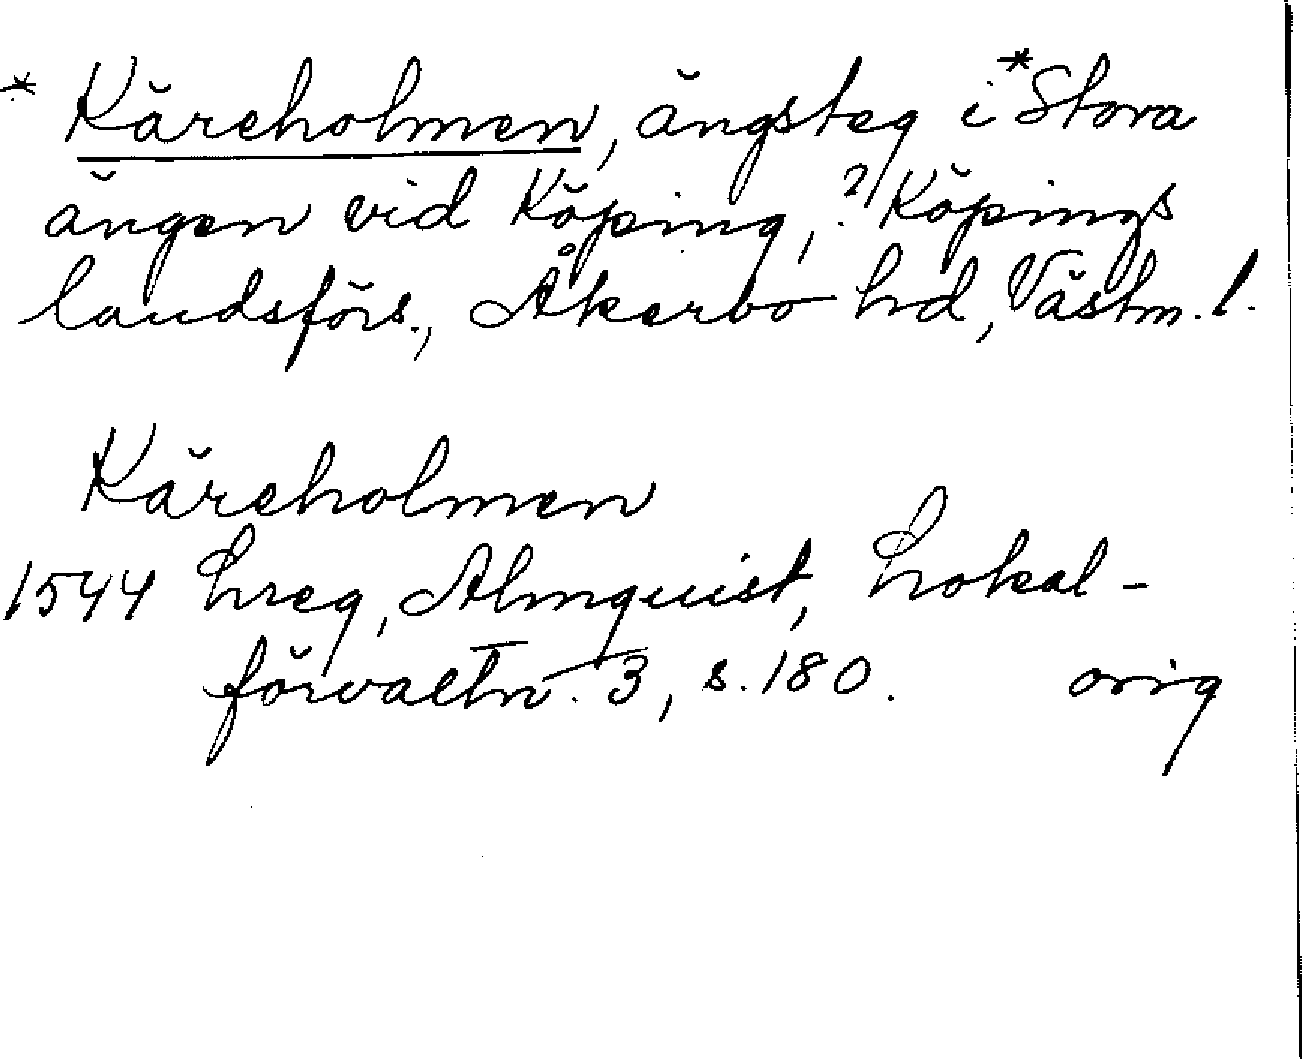 * Käreholmen, ängsteg i *Stora
ängen vid Köping, ? Köpings
landsförs., Åkerbo hd, Västm. l.
Käreholmen
1544 hreg, Almquist, Lokal-
förvaltn. 3, s. 180. orig